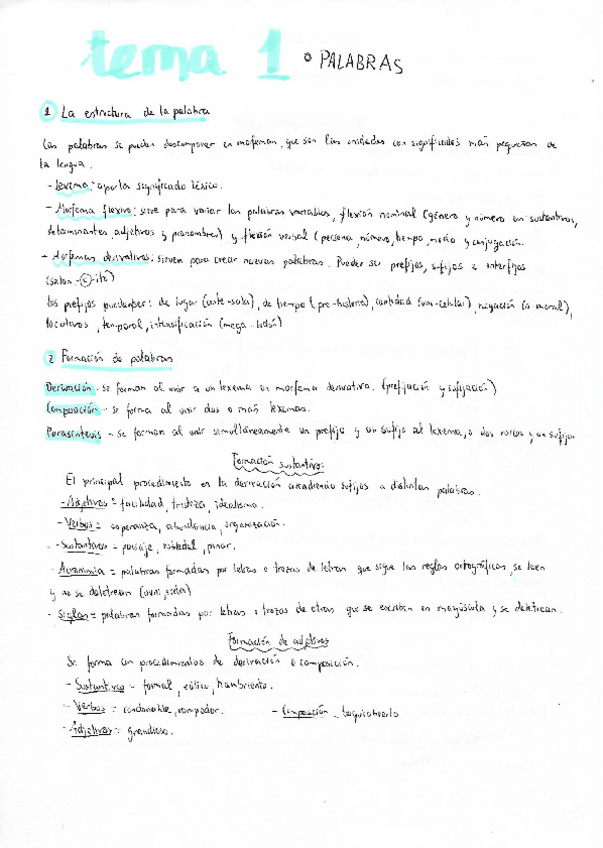 tema 1 ∘ PALABRAS
1 La estructura de la palabra
Las palabras se pueden descomponer en morfemas, que son las unidades con significado más pequeñas de
la lengua.
- Lexema: aporta significado léxico.
- Morfema flexivo: sirve para variar las palabras variables, flexión nominal (género y número en sustantivos,
determinantes, adjetivos y pronombres) y flexión verbal (persona, número, tiempo, modo y conjugación.
- Morfemas derivativos: sirven para crear nuevas palabras. Pueden ser prefijos, sufijos e interfijos
-C-ito)
Los prefijos pueden ser: de lugar (ante-sala), de tiempo (pre-historia), cantidad (uni-celular), negación (a moral),
locativos, temporal, intensificación
2 Formación de palabras
Derivación - se forman al unir a un lexema un morfema derivativo. (prefijación y sufijación)
Composición - se forma al unir dos o más lexemas.
Parasíntesis - se forman al unir simultáneamente un prefijo y un sufijo al lexema, o dos raíces y un sufijo
Formación sustantivos:
El principal procedimiento en la derivación añadiendo sufijos a distintas palabras.
- Adjetivos = facilidad, tristeza, idealismo.
- Verbos = esperanza, abundancia, organización.
- Sustantivos = paisaje, robledal, pinar.
- Acronimia = palabras formadas por letras o trozos de letras que sigue las reglas ortográficas, se leen
y no se deletrean
- Siglas = palabras formadas por letras o trozos de otras que se escriben en mayúscula y se deletrean.
Formación de adjetivos
Se forma con procedimientos de derivación o composición.
- Sustantivos - formal, hambriento.
- Verbos = condenable, rompedor. - Composición - boquiabierto
- Adjetivos = grandioso.